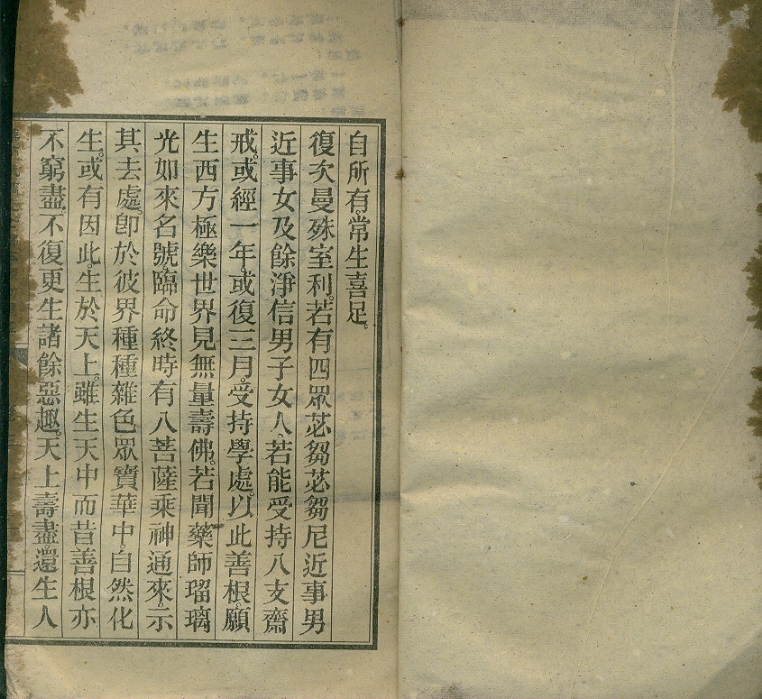 自所有。常生喜足。
復次曼殊室利。若有四眾苾芻苾芻尼近事男
近事女及餘淨信男子女人若能受持八支齋
戒。或經一年。或復三月。受持學處。以此善根。願
生西方極樂世界見無量壽佛。若聞藥師瑠璃
光如來名號。臨命終時有八菩薩乘神通來。示
其去處。卽於彼界種種雜色眾寶華中。自然化
生。或有因此。生於天上。雖生天中而昔善根亦
不窮盡。不復更生諸餘惡趣。天上壽盡還生人